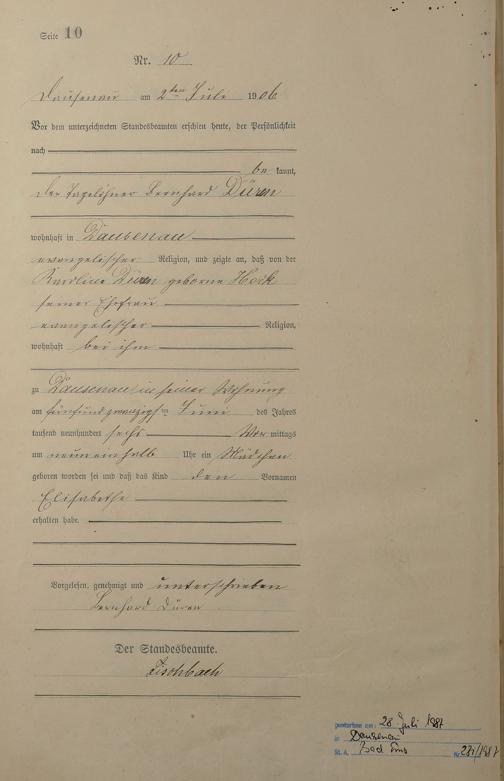 Seite 10
Nr. 10
Dausenau am 2ten Juli 1906
Vor dem unterzeichneten Standesbeamten erschien heute, der Persönlichkeit
nach
be kannt,
der Tagelöhner Bernhard Düren
wohnhaft in Dausenau
evangelischer Religion, und zeigte an, daß von der
Karoline Düren geborne Hock
seiner Ehefrau
evangelischer Religion,
wohnhaft bei ihm
zu Dausenau in seiner Wohnung
am fünfundzwanzigsten Juni des Jahres
tausend neunhundert sechs Vor mittags
um neuneinhalb Uhr ein Mädchen
geboren worden sei und daß das Kind den Vornamen
Elisabethe
erhalten habe.
Vorgelesen, genehmigt und unterschrieben
Bernhard Düren
Der Standesbeamte.
Fischbach
gestorben am: 28. Juli 1987
in Dausenau
St. A. Bad Ems Nr.